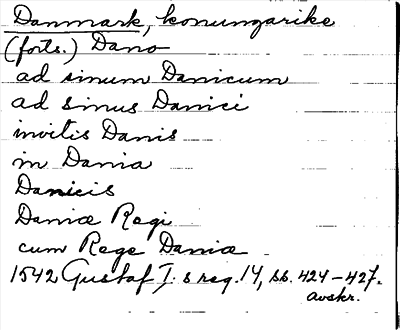 Danmark, konungarike
(forts.) Dano
ad sinum Danicum
ad sinus Danici
invitis Danis
in Dania
Danicis
Daniæ Regi
cum Rege Daniæ
1542 Gustaf I:s reg. 14, ss. 424-427.
avskr.